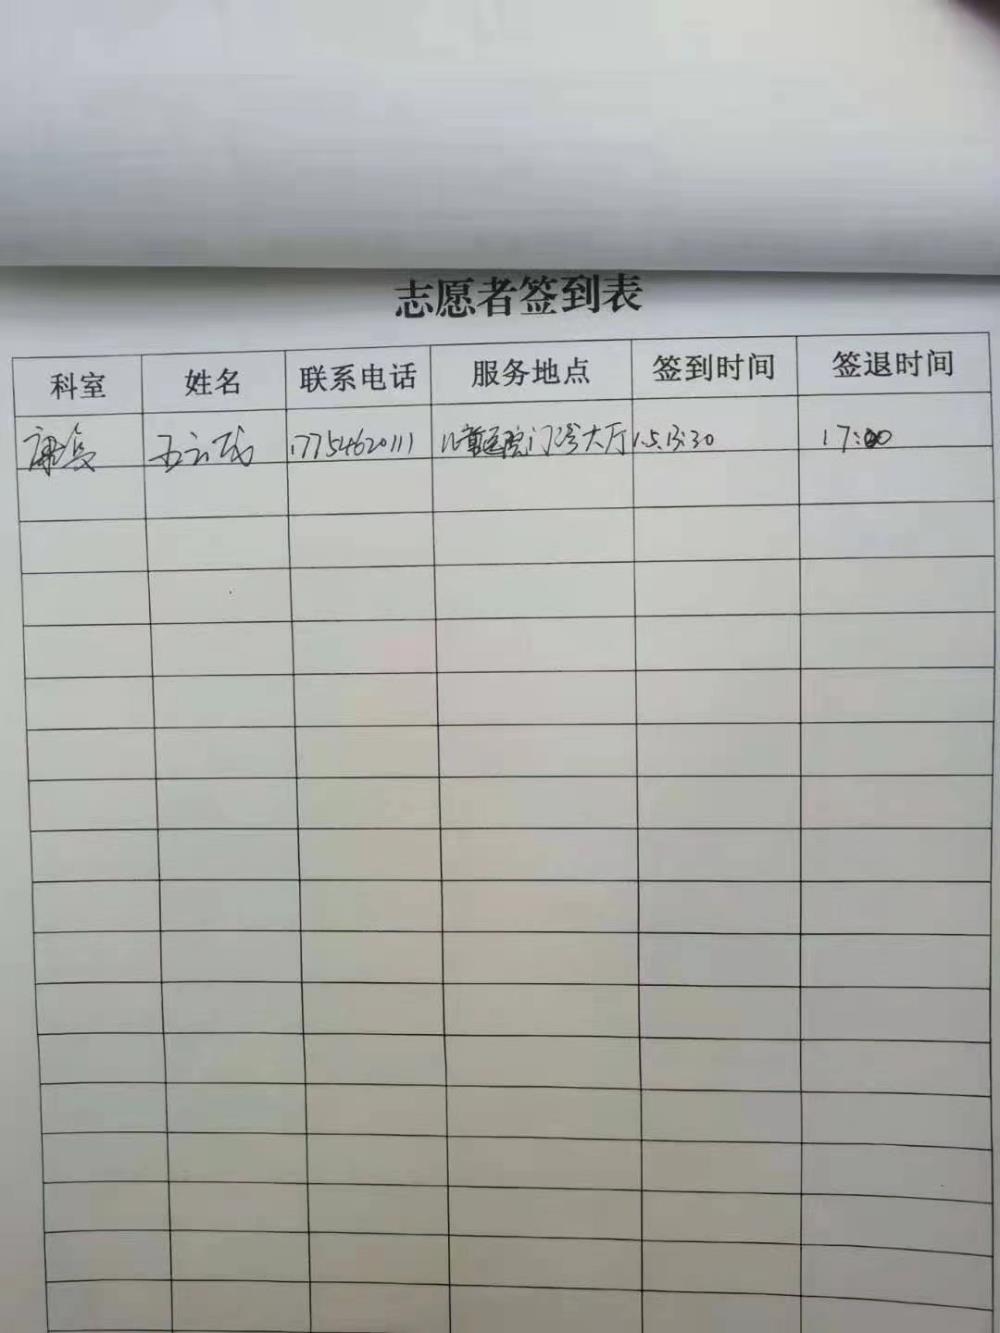 志愿者签到表
科室 姓名 联系电话 服务地点 签到时间 签退时间
康复 王云成 17754620111 儿童医院门诊大厅 1.5.13:30 17:00